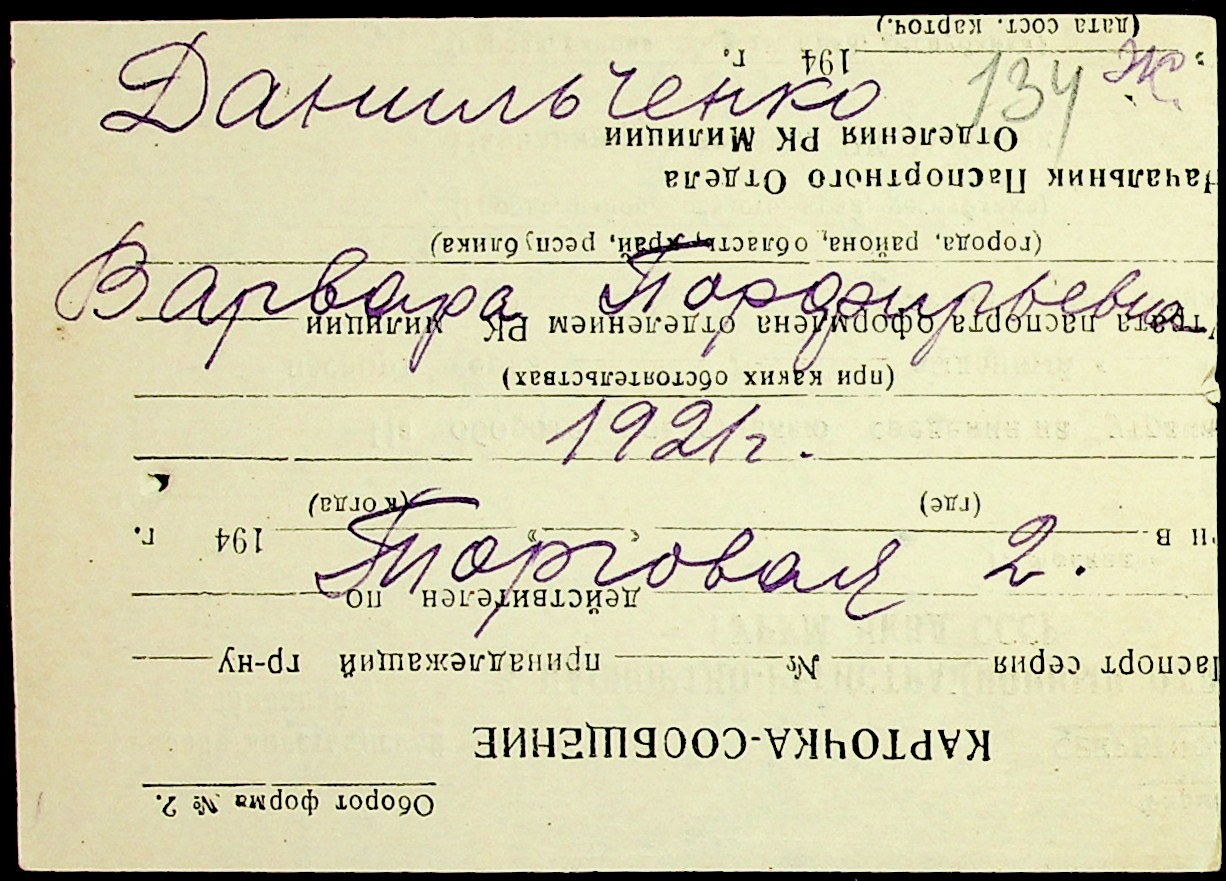 Данильченко 134 Ж.
Варвара Порфирьевна
1921 г.
Торговая 2.
Оборот форма № 2.
КАРТОЧКА-СООБЩЕНИЕ
Паспорт серия № принадлежащий гр-ну
действителен по
в „ “ 194 г.
(где) (когда)
(при каких обстоятельствах)
Утрата паспорта оформлена отделением РК милиции
(города, района, область, край, республика)
Начальник Паспортного Отдела
Отделения РК Милиции
" 194 г.
(дата сост. карточ.)